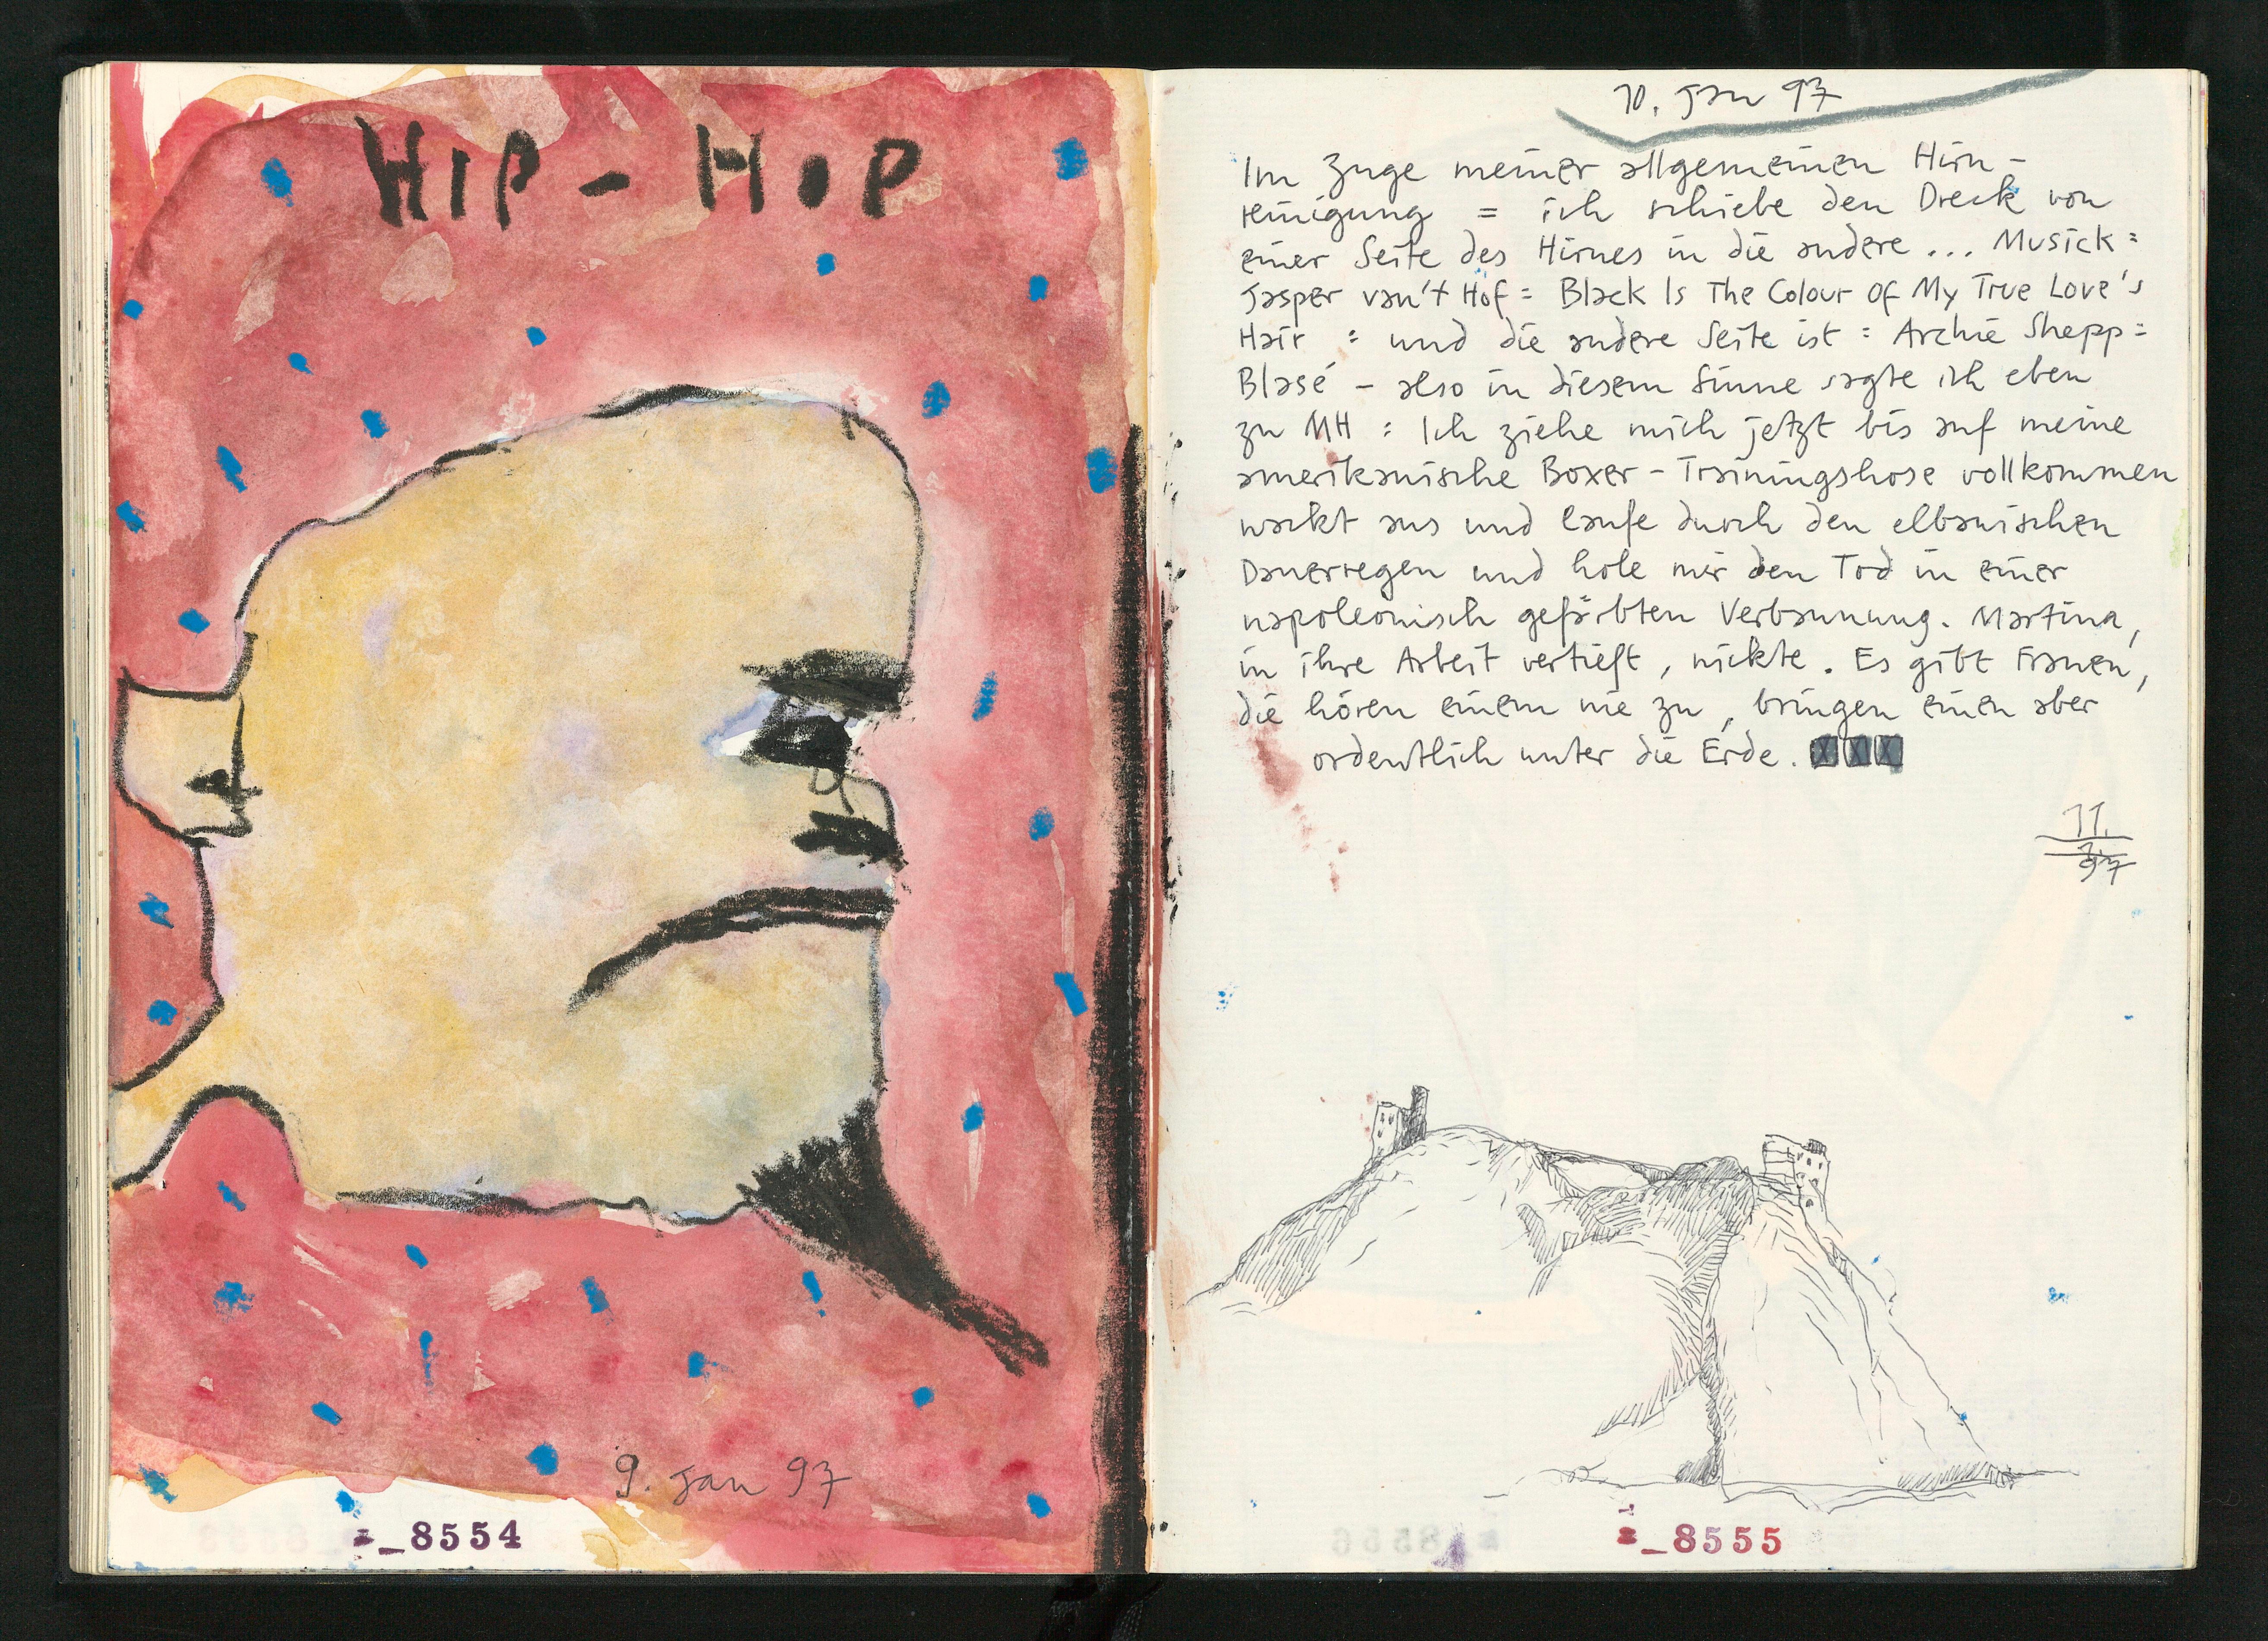 HIP-HOP
9. Jan 97
=_8554
10. Jan 97
Im Zuge meiner allgemeinen Hirn-
reinigung = ich schiebe den Dreck von
einer Seite des Hirnes in die andere ... Musick =
Jasper van't Hof = Black Is The Colour Of My True Love's
Hair : und die andere Seite ist : Archie Shepp =
Blasé – also in diesem Sinne sagte ich eben
zu MH : Ich ziehe mich jetzt bis auf meine
amerikanische Boxer-Trainingshose vollkommen
nackt aus und laufe durch den elbanischen
Dauerregen und hole mir den Tod in einer
napoleonisch gefärbten Verbannung. Martina,
in ihre Arbeit vertieft, nickte. Es gibt Frauen,
die hören einem nie zu, bringen einen aber
ordentlich unter die Erde. XXX
11.
1.
97
=_8555